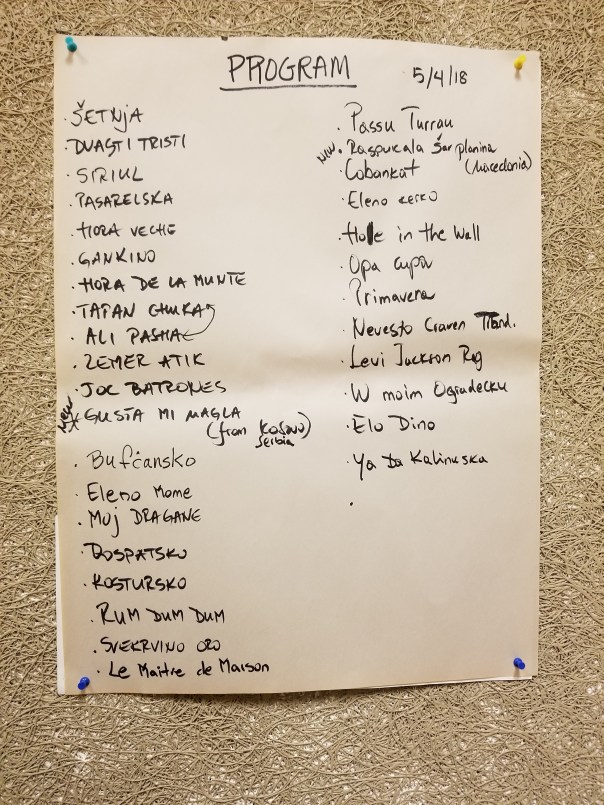 PROGRAM
5/4/18
· ŠETNJA
· DVASTI TRISTI
· SIRIUL
· PASARELSKA
· HORA VECHE
· GANKINO
· HORA DE LA MUNTE
· TAPAN CHUKA
· ALI PASHA
· ZEMER ATIK
· JOC BATRONES
New
* GUSTA MI MAGLA
(from Kosovo)
Serbia
· Bufčansko
· Eleno Mome
· Moj DRAGANE
· DOSPATSKO
· KOSTURSKO
· RUM DUM DUM
· SVEKRVINO ORO
· Le Maitre de Maison
· Passu Turrau
New · Raspukala Šar planina
(Macedonia)
· Cobankat
· Eleno KERKO
· Hole in the Wall
· Opa cupa
· Primavera
· Nevesto Craven Trand.
· Levi Jackson Rag
· W moim Ogrudecku
· Elo Dino
· Ya Da Kalinuska
·